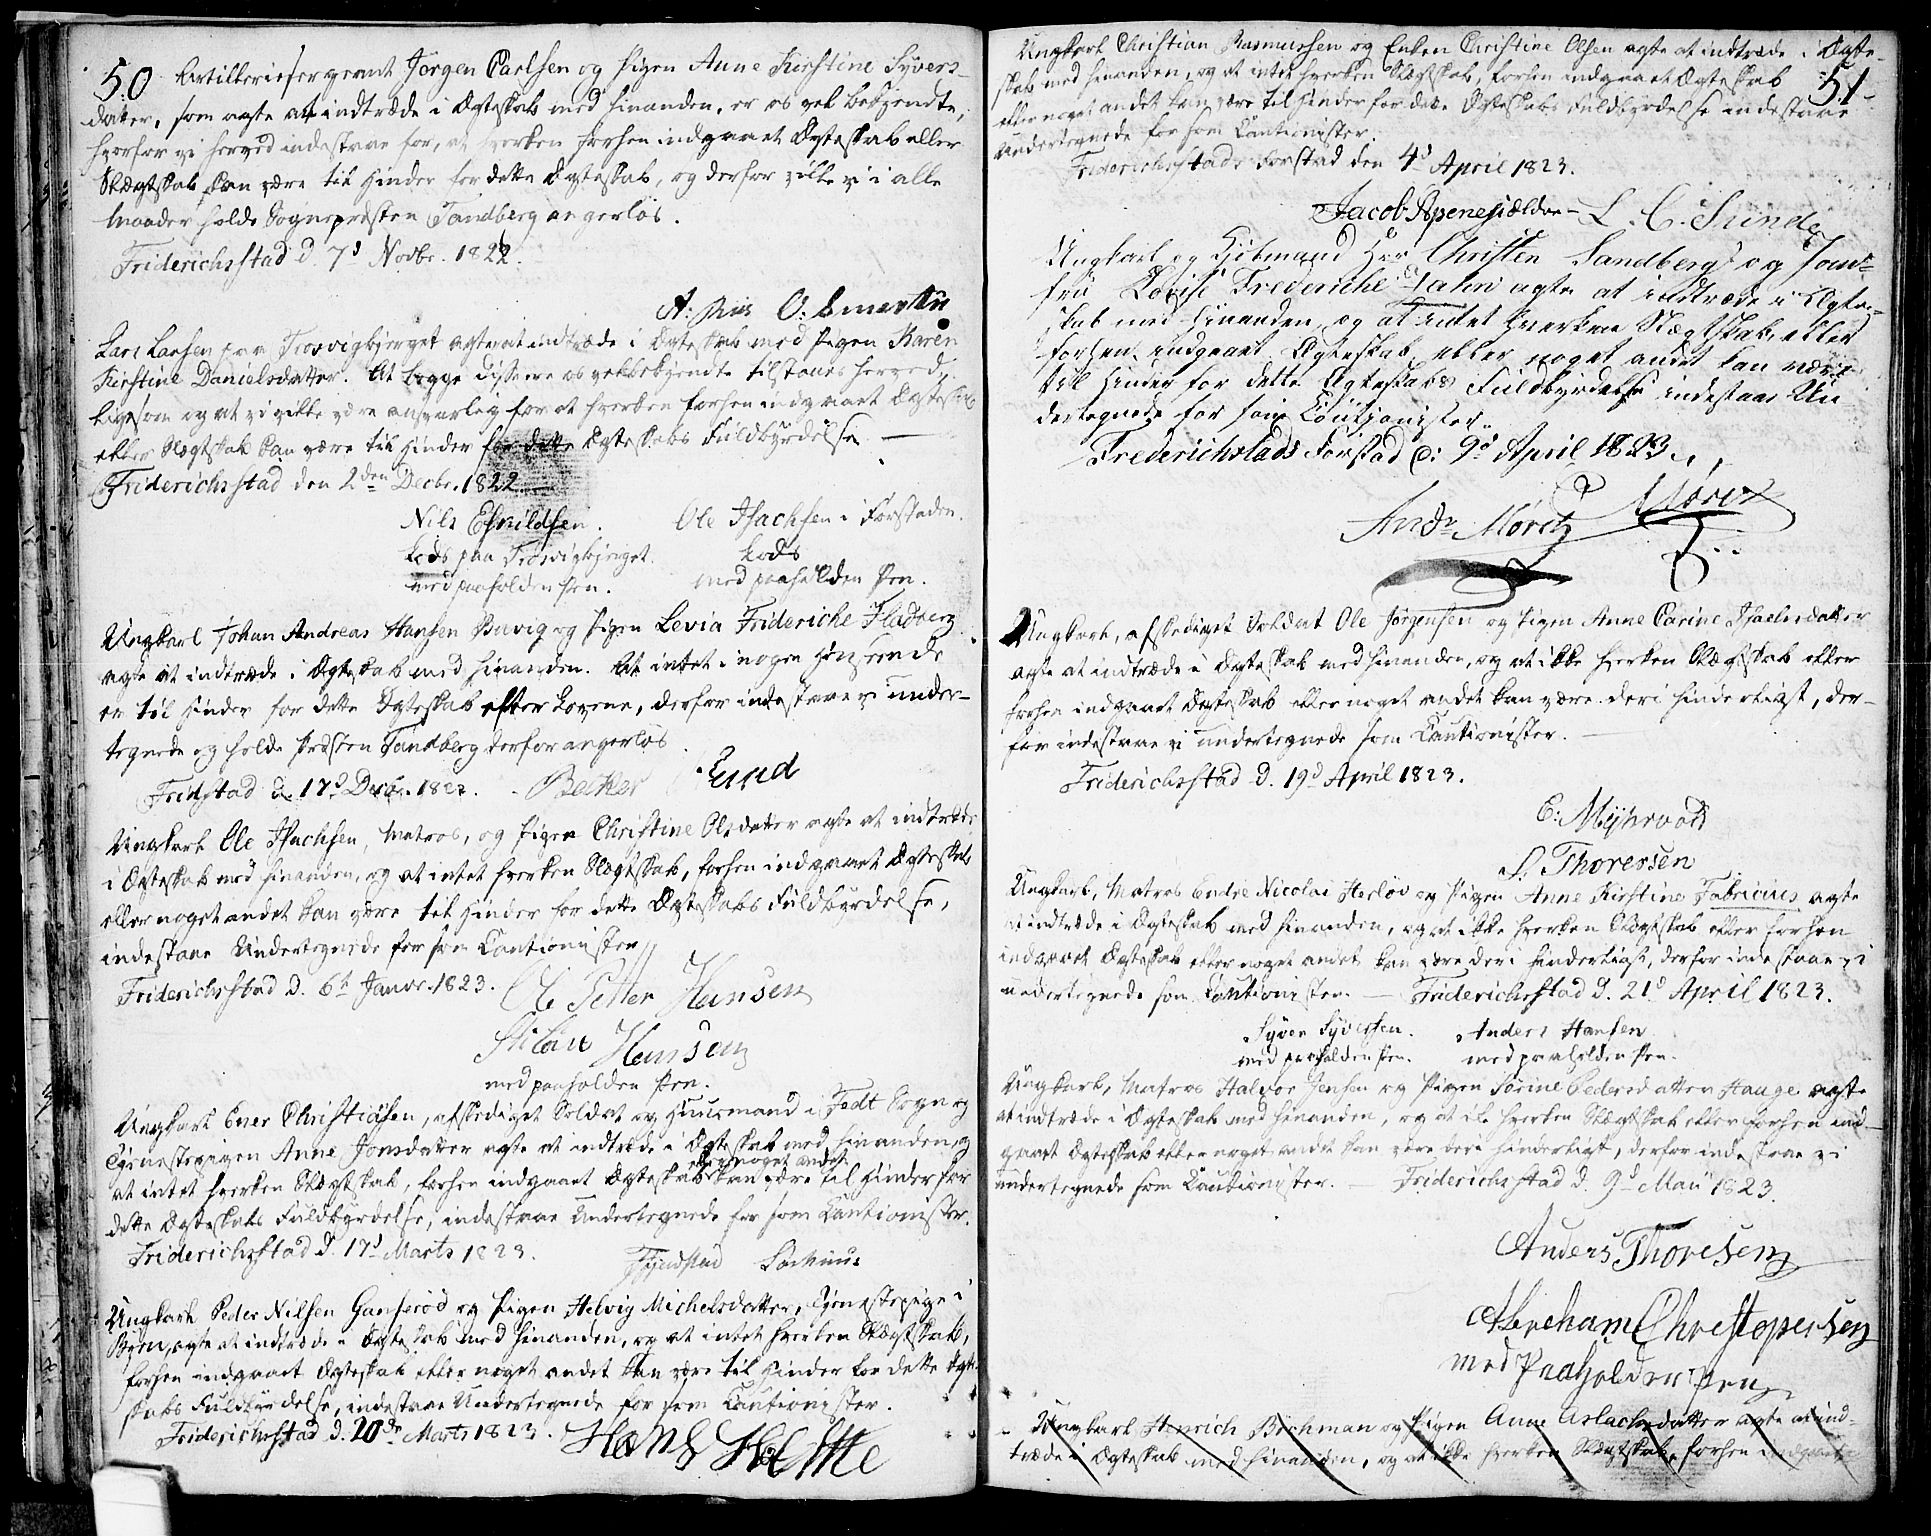 50
Artillerisergeant Jørgen Carlsen og Pigen Anne Kirstine Syvers-
datter, som agte at indtræde i Ægteskab med hinanden, er os vel bekjendte,
hvorfor vi herved indestaae for, at hverken forhen indgaaet Ægteskab eller
Slægtskab kan være til Hinder for dette Ægteskab, og derfor ville vi i alle
Maader holde Sognepresten Tandberg angerløs.
Friderichsstad d. 7d Novbr. 1822.
Lars Larsen paa Trosvigbjerget agter at indtræde i Ægteskab med Pigen Karen
Kirstine Danielsdatter. At begge disse ere os velbekjendte tilstaaes herved,
ligesom og at vi ville være ansvarlig for at hverken forhen indgaaet Ægteskab
eller Slægtskab kan være til Hinder for dette Ægteskabs Fuldbyrdelse. —
Friderichsstad den 2den Decbr. 1822. —
Nils Eskildsen. Ole Isachsen i Forstaden.
Lods paa Trosvigbjerget. Lods
med paaholden Pen. med paaholden Pen.
Ungkarl Johan Andreas Hansen Buvig og Pigen Levia Frideriche Fladberg
agte at indtræde i Ægteskab med hinanden. At intet i nogen Henseende
er til Hinder for dette Ægteskab efter Lovene, derfor indestaae vi under-
tegnede og holde Presten Tandberg derfor angerløs.
Fridstad d. 17d Decbr. 1822. Becker Lund
Ungkarl Ole Isachsen, Matros, og Pigen Christine Olsdatter agte at indtræde
i Ægteskab med hinanden, og at intet hverken Slægtskab, forhen indgaaet Ægteskab
eller noget andet kan være til Hinder for dette Ægteskabs Fuldbyrdelse,
indestaae Undertegnede for som Cautionister
Friderichsstad d. 6te Januar 1823. Ole Petter Hansen
Hansen
med paaholden Pen.
Ungkarl Ener Christiansen, afskediget Soldat og Huusmand i Tedt Sogn og
Tjenestepigen Anne Jonsdatter agte at indtræde i Ægteskab med hinanden, og
eller noget andet
at intet hverken Slægtskab, forhen indgaaet Ægteskab kan være til Hinder for
dette Ægteskabs Fuldbyrdelse, indestaae Undertegnede for som Cautionister.
Friderichsstad d. 17d Marts 1823.
Ungkarl Peder Nilsen Ganserød og Pigen Helvig Michelsdatter, Tjenestepige i
Byen, agte at indtræde i Ægteskab med hinanden, og at intet hverken Slægtskab,
forhen indgaaet Ægteskab eller noget andet kan være til Hinder for dette Ægte-
skabs Fuldbyrdelse, indestaae Undertegnede for som Cautionister.
Friderichsstad d. 20de Marts 1823. Hans
51
Ungkarl Christian Rasmussen og Enken Christine Olsen agte at indtræde i Ægte-
skab med hinanden, og at intet hverken Slægtskab, forhen indgaaet Ægteskab
eller noget andet kan være til Hinder for dette Ægteskabs Fuldbyrdelse indestaae
Undertegnede for som Cautionister.
Friderichsstads Forstad den 4d April 1823.
Jacob Apenesjældre — L. C. Sunde
Ungkarl og Kjøbmand Her Christen Sandberg og Jom-
fru Lovise Frederiche agte at indtræde i Ægte-
skab med Hinanden, og at intet hverken Slægtskab, eller
forhen indgaaet Ægteskab, eller noget andet kan være
til Hinder for dette Ægteskabs Fuldbyrdelse indestaar Un-
dertegnede for som Cautjonister.
Frederichstads Forstad d: 9d April 1823.
Andr. Moretz Moretz
Ungkarl, afskediget Soldat Ole Jørgensen og Pigen Anne Carine Isaelsdatter
agte at indtræde i Ægteskab med hinanden, og at ikke hverken Slægtskab eller
forhen indgaaet Ægteskab eller noget andet kan være deri hinderligt, der-
for indestaae vi undertegnede som Cautionister. —
Friderichsstad d. 19d April 1823.
C: Mÿhrvold
S. Thoresen
Ungkarl, Matros Endre Nicolai Herløv og Pigen Anne Kirstine Fabricius agte
at indtræde i Ægteskab med hinanden, og at ikke hverken Slægtskab eller forhen
indgaaet Ægteskab eller noget andet kan være deri hinderligt, derfor indestaae vi
undertegnede som Cautionister. — Friderichsstad d. 21d April 1823.
Syver Syversen. Anders Hansen
med paaholden Pen. med paaholden Pen.
Ungkarl, Matros Halvor Jensen og Pigen Sørine Pedersdatter Hauge agte
at indtræde i Ægteskab med hinanden, og at ikke hverken Slægtskab eller forhen ind-
gaaet Ægteskab eller noget andet kan være deri hinderligt, derfor indestaae vi
undertegnede som Cautionister. — Friderichsstad d. 9d Maii 1823.
Anders Thoresen
Abreham Christopersen
med Paaholden Pen
Ungkarl Henrich Bochman og Pigen Anne Aslachsdatter agte at ind-
træde i Ægteskab med hinanden, og at ikke hverken Slægtskab, forhen indgaaet